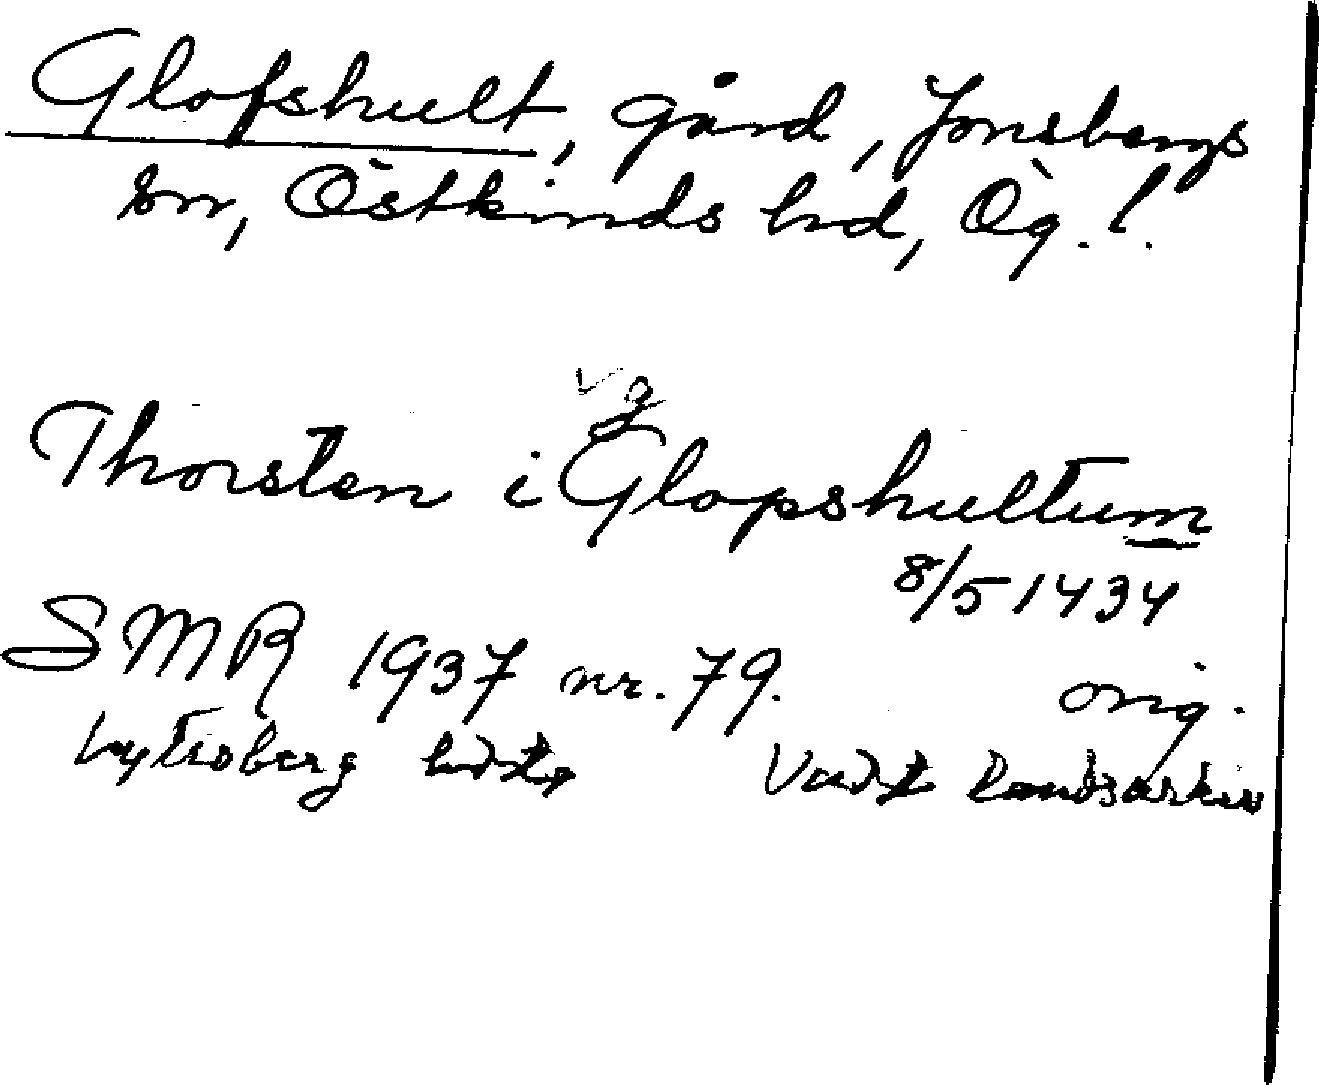 Glofshult, gård, Jonsbergs
sn, Östkinds hd, Ög. l.
v g
Thorsten i Glopshultum
8/5 1434
SMR 1937 nr. 79. orig.
Vadst landsarkiv